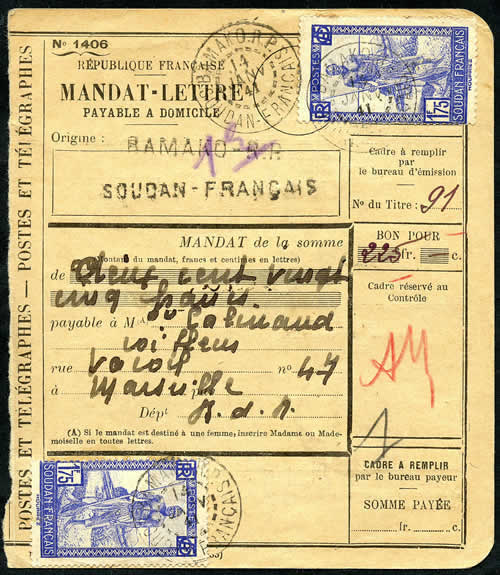 No 1406
RÉPUBLIQUE FRANÇAISE
MANDAT-LETTRE
PAYABLE A DOMICILE
BAMAKO R.P.
14
JANV
41
SOUDAN-FRANÇAIS
POSTES
1F75
SOUDAN FRANÇAIS
Origine :
BAMAKO-R.P.
SOUDAN-FRANÇAIS
Cadre à remplir
par
le bureau d'émission
No du Titre : 91
MANDAT de la somme
(Montant du mandat, francs et centimes en lettres)
de Deux cent vingt
cinq francs
BON POUR
225 fr. — c.
Cadre réservé au
Contrôle
AM
payable à M
rue no 47
à Marseille
Dépt
(A) Si le mandat est destiné à une femme, inscrire Madame ou Made-
moiselle en toutes lettres.
CADRE A REMPLIR
par le bureau payeur
SOMME PAYÉE
fr. c.
POSTES ET TÉLÉGRAPHES — POSTES ET TÉLÉGRAPHES
1F75
SOUDAN FRANÇAIS
POSTES